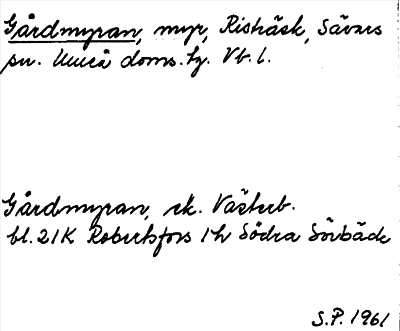 Gårdmyran, myr, Risbäck, Sävars
sn. Umeå doms.hg. Vb.l.
Gårdmyran, ek. Västerb.
bl. 21K Robertsfors 1h Södra Sörbäck
S.P. 1961